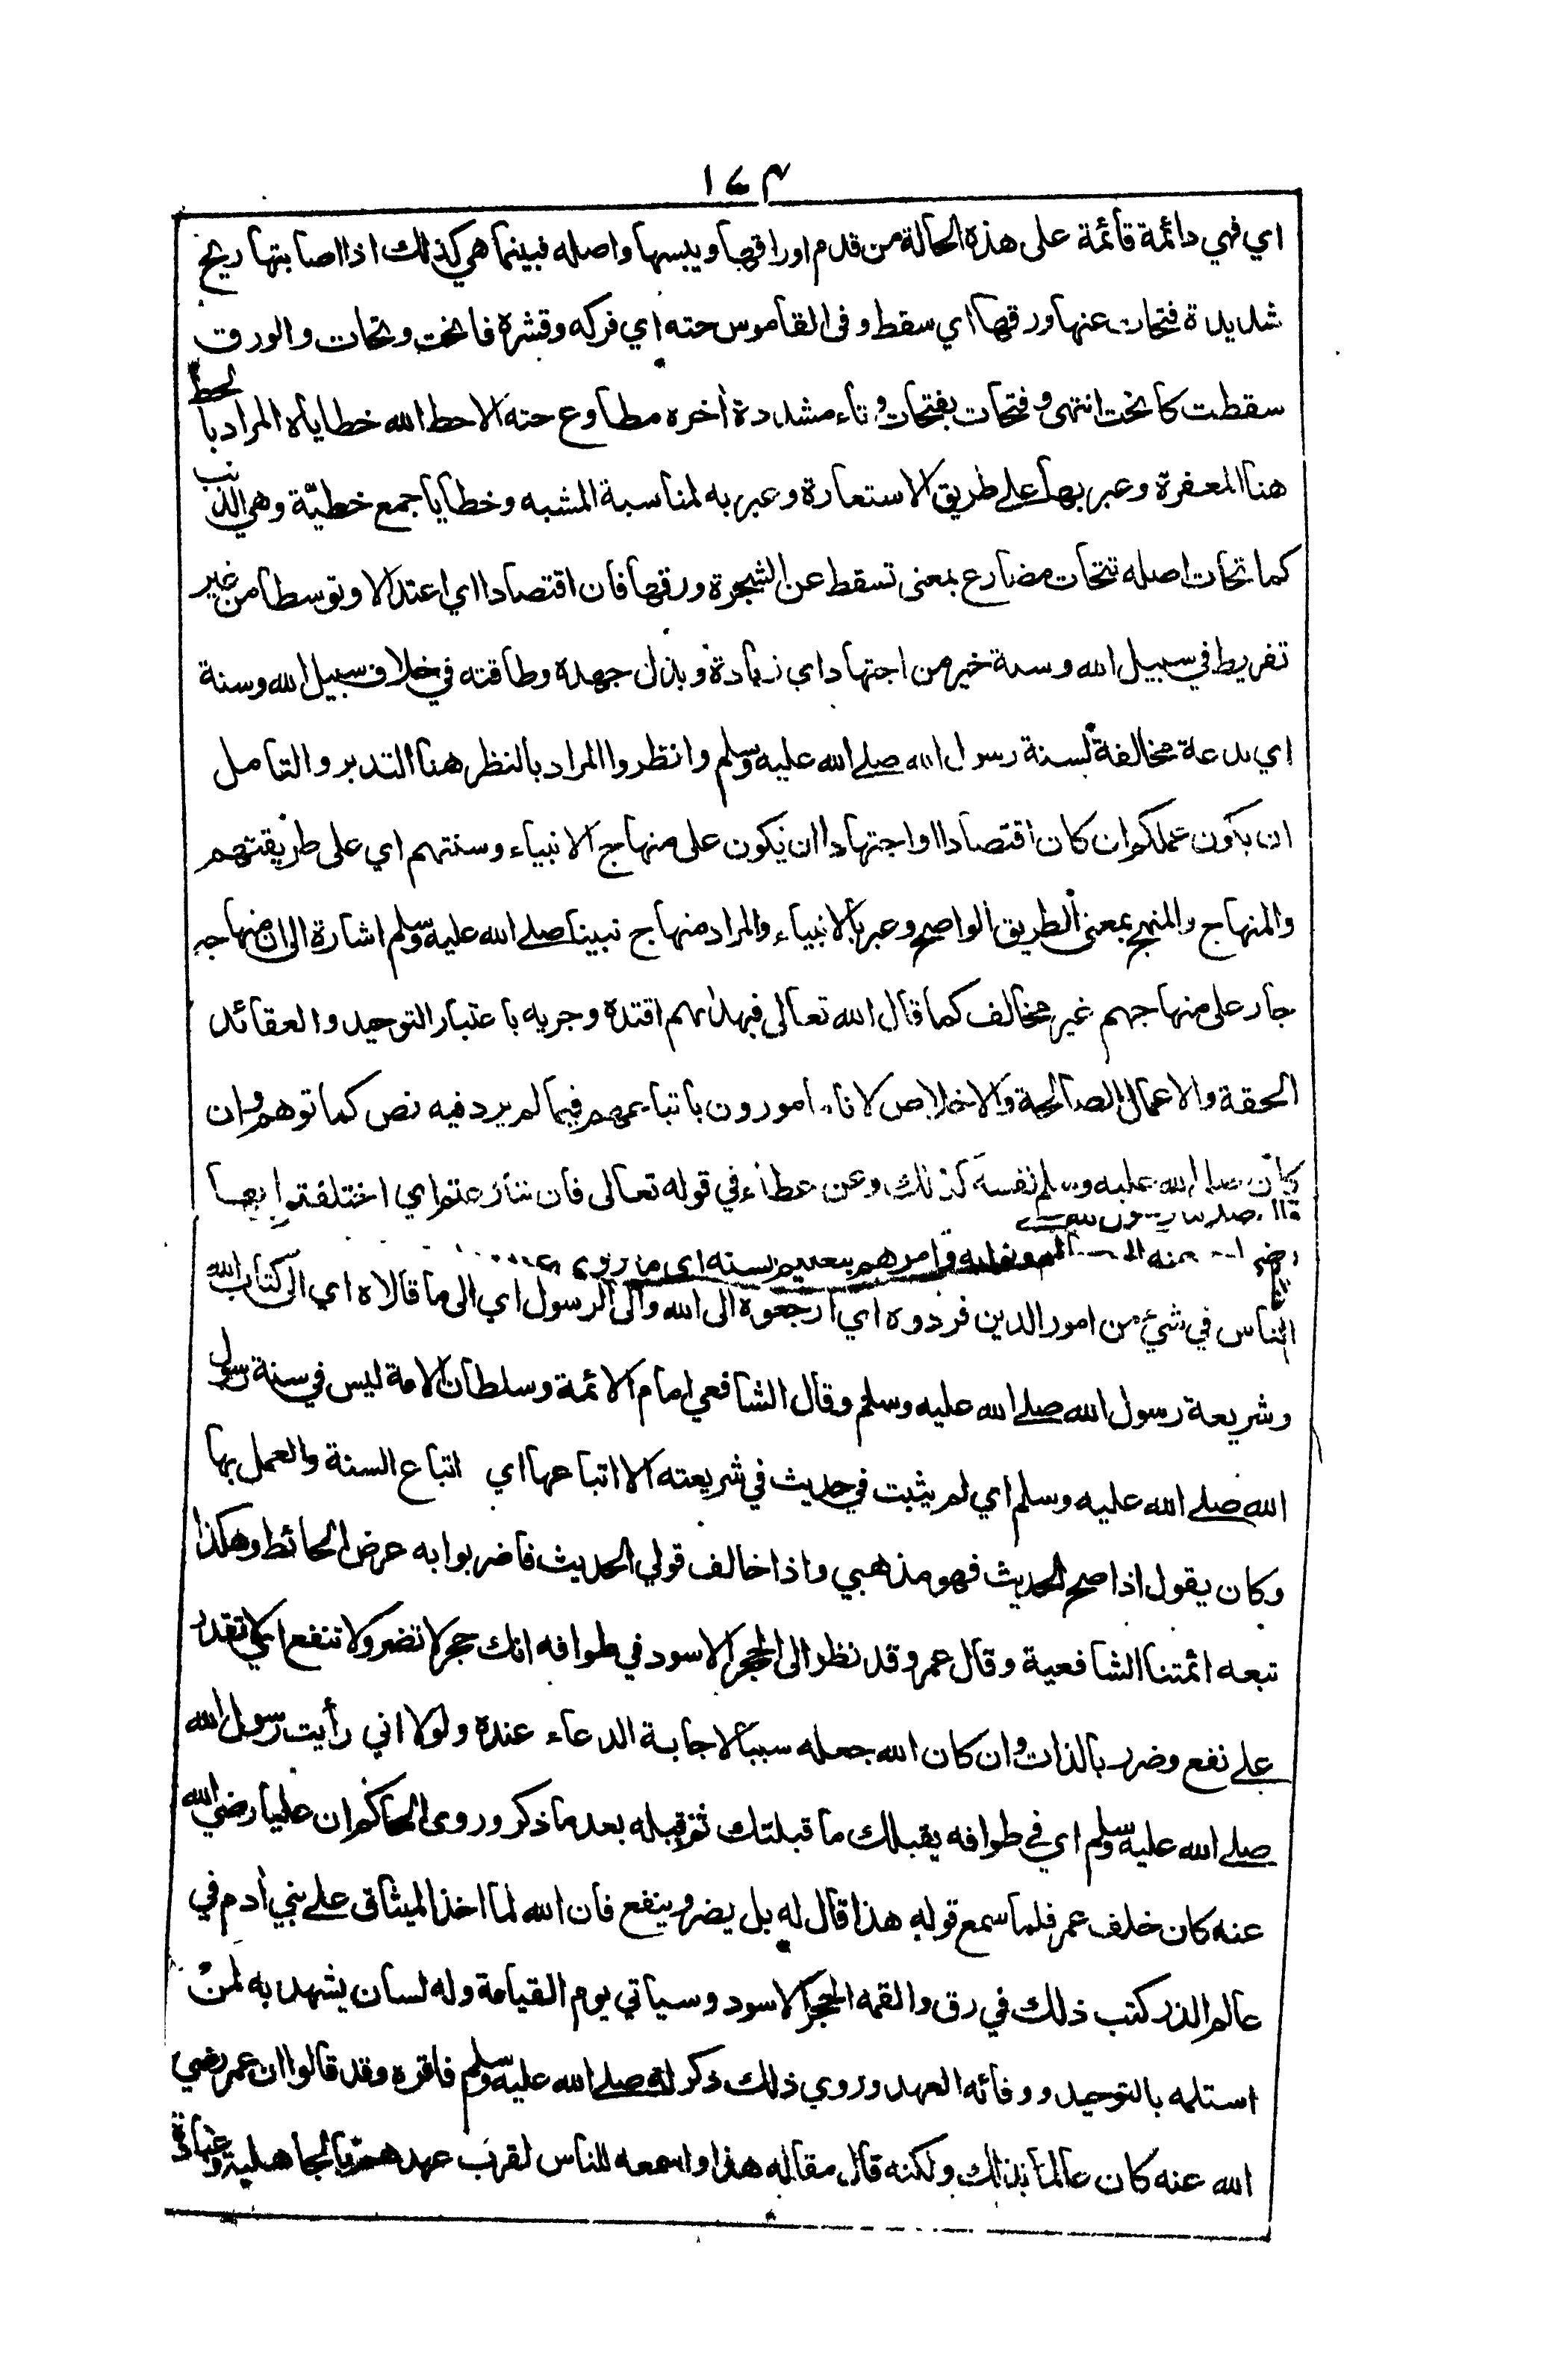 ١٤٣
اي فهي دائمة قائمة على هذه الحالة من قدم اوراقها ويبسها واصله فبينما هي كذلك اذا اصابتها ريح
شديدة فتحات عنها ورقها اي سقط وفى القاموس حته اي فركه وقشره فانحت وتحات والورق
سقطت كانحت انتهى وفتحات بفتحات وتاء مشددة أخره مطاوع حته الا حط الله خطاياه المراد بالحط
هنا المغفرة وعبر بها على طريق الاستعارة وعبر به لمناسبة المشبه وخطايا جمع خطيّة وهي الذنب
كما تحات اصله تتحات مضارع بمعنى تسقط عن الشجرة ورقها فان اقتصادا اي اعتدالا وتوسطا من غير
تفريط في سبيل الله وسنة خير من اجتهاد اي زيادة وبذل جهده وطاقته في خلاف سبيل الله وسنة
اي بدعة مخالفة لسنة رسول الله صلى الله عليه وسلم وانظروا المراد بالنظر هنا التدبر والتامل
ان يكون عملكم ان كان اقتصادا او اجتهادا ان يكون على منهاج الانبياء وسنتهم اي على طريقتهم
والمنهاج والمنهج بمعنى الطريق الواضح وعبر بالانبياء والمراد منهاج نبينا صلى الله عليه وسلم اشارة الى ان منهاجه
جار على منهاجهم غير مخالف كما قال الله تعالى فبهداهم اقتده وجريه باعتبار التوحيد والعقائد
الحقة والاعمال الصالحة والاخلاص لا نا مامورون باتباعهم فيما لم يرد فيه نص كما توهم وان
كان صلى الله عليه وسلم نفسه كذلك وعن عطاء في قوله تعالى فان تنازعتم اي اختلفتم ايها
رضي عنه وامرهم بتعليم سنته اي ما روي
الناس في شيء من امور الدين فردوه اي ارجعوه الى الله والى الرسول اي الى ما قالاه اي الى كتاب الله
وشريعة رسول الله صلى الله عليه وسلم وقال الشافعي امام الائمة وسلطان الامة ليس في سنة رسول
الله صلى الله عليه وسلم اي لم يثبت في حديث في شريعته الا اتباعها اي اتباع السنة والعمل بها
وكان يقول اذا صح الحديث فهو مذهبي واذا خالف قولي الحديث فاضربوا به عرض الحائط وهكذا
تبعه ائمتنا الشافعية وقال عمر وقد نظر الى الحجر الاسود في طوافه انك حجر لا تضر ولا تنفع اي لا تقدر
على نفع وضرر بالذات وان كان الله جعله سببا لاجابة الدعاء عنده ولولا اني رأيت رسول الله
صلى الله عليه وسلم اي في طوافه يقبلك ما قبلتك ثم قبله بعد ما ذكر وروى الحاكم ان عليا رضي الله
عنه كان خلف عمر فلما سمع قوله هذا قال له بل يضر وينفع فان الله لما اخذ الميثاق على بني أدم في
عالم الذر كتب ذلك في رق والقمه الحجر الاسود وسياتي يوم القيامة وله لسان يشهد به لمن
استلمه بالتوحيد ووفائه العهد وروي ذلك ذكر له صلى الله عليه وسلم فاقره وقد قالوا ان عمر رضي
الله عنه كان عالما بذلك ولكنه قال مقاله هذا واسمعه للناس لقرب عهدهم بالجاهلية وعبادة